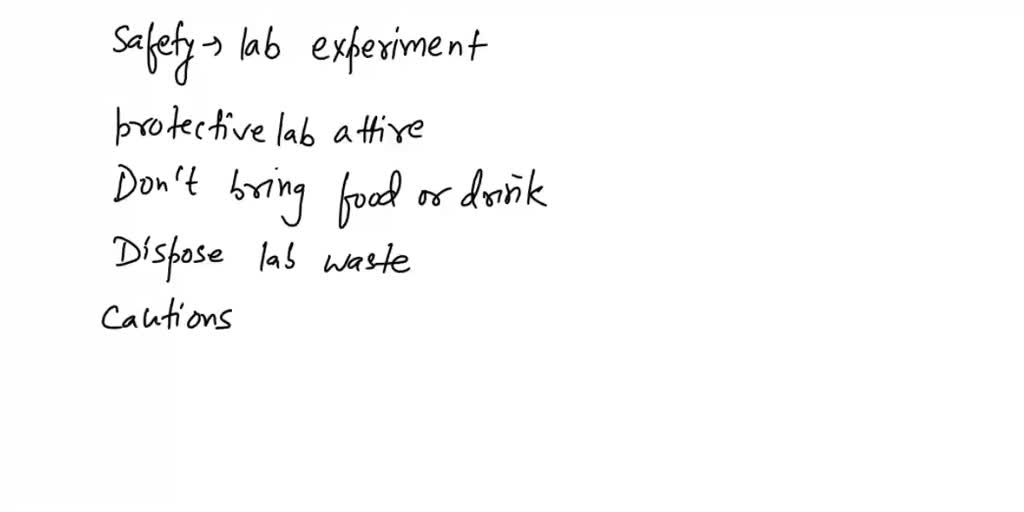 Safety → lab experiment
protective lab attire
Don't bring food or drink
Dispose lab waste
Cautions